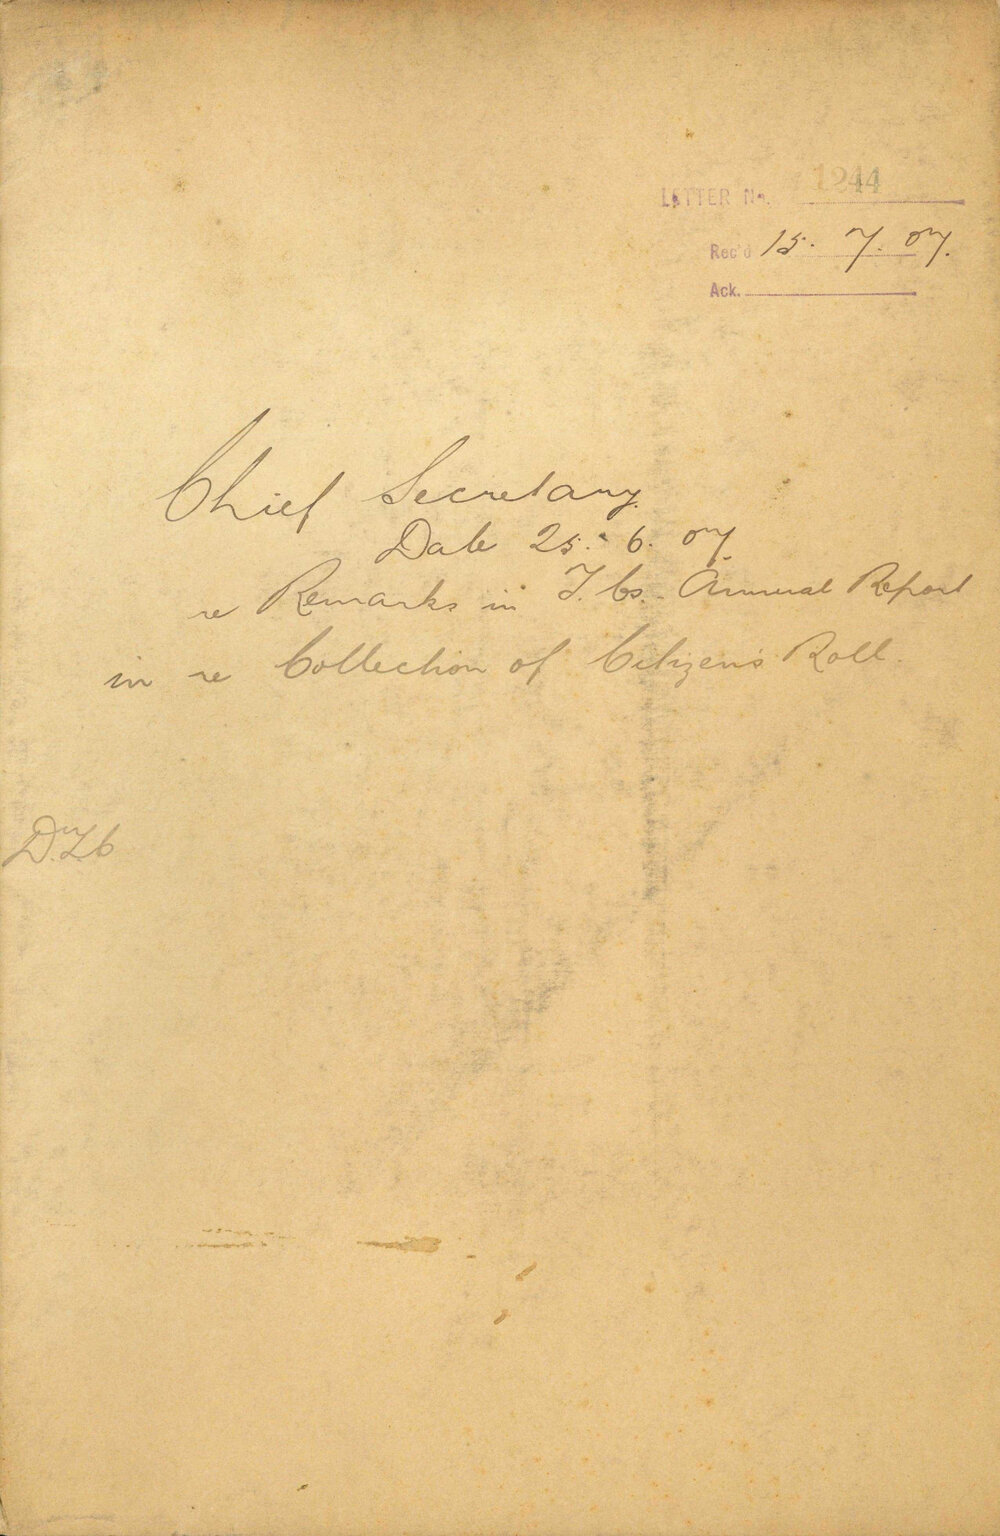 LETTER No. 1244
Rec'd 15. 7. 07.
Ack.
Chief Secretary.
Date 25. 6. 07.
re Remarks in T. Cs. Annual Report
in re Collection of Citizen's Roll.